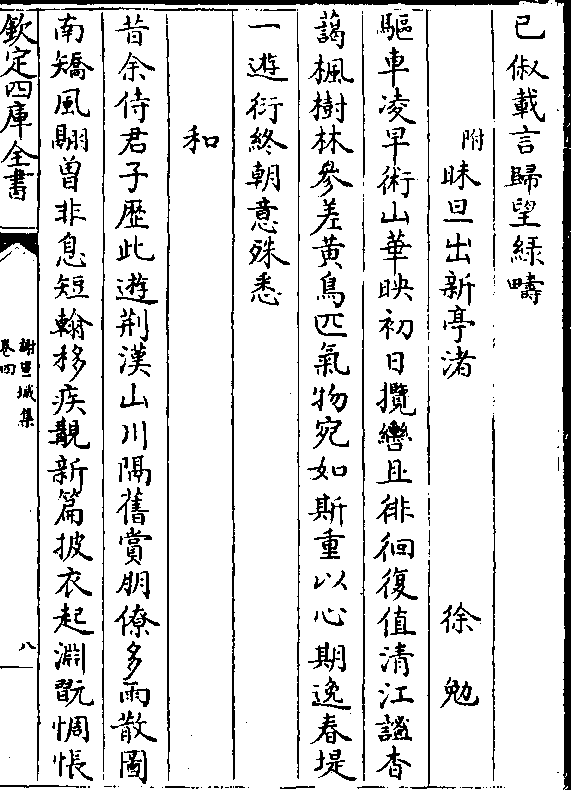 已俶載言歸望綠疇
附 昧旦出新亭渚 徐勉
驅車凌早術山華映初日攬轡且徘徊復值清江謐杳
藹楓樹林參差黃鳥匹氣物宛如斯重以心期逸春堤
一遊衍終朝意殊悉
和
昔余侍君子歷此遊荆漢山川隔舊賞朋僚多雨散圖
南矯風翮曽非息短翰移疾覯新篇披衣起淵翫惆悵
欽定四庫全書
謝宣城集
卷四
八